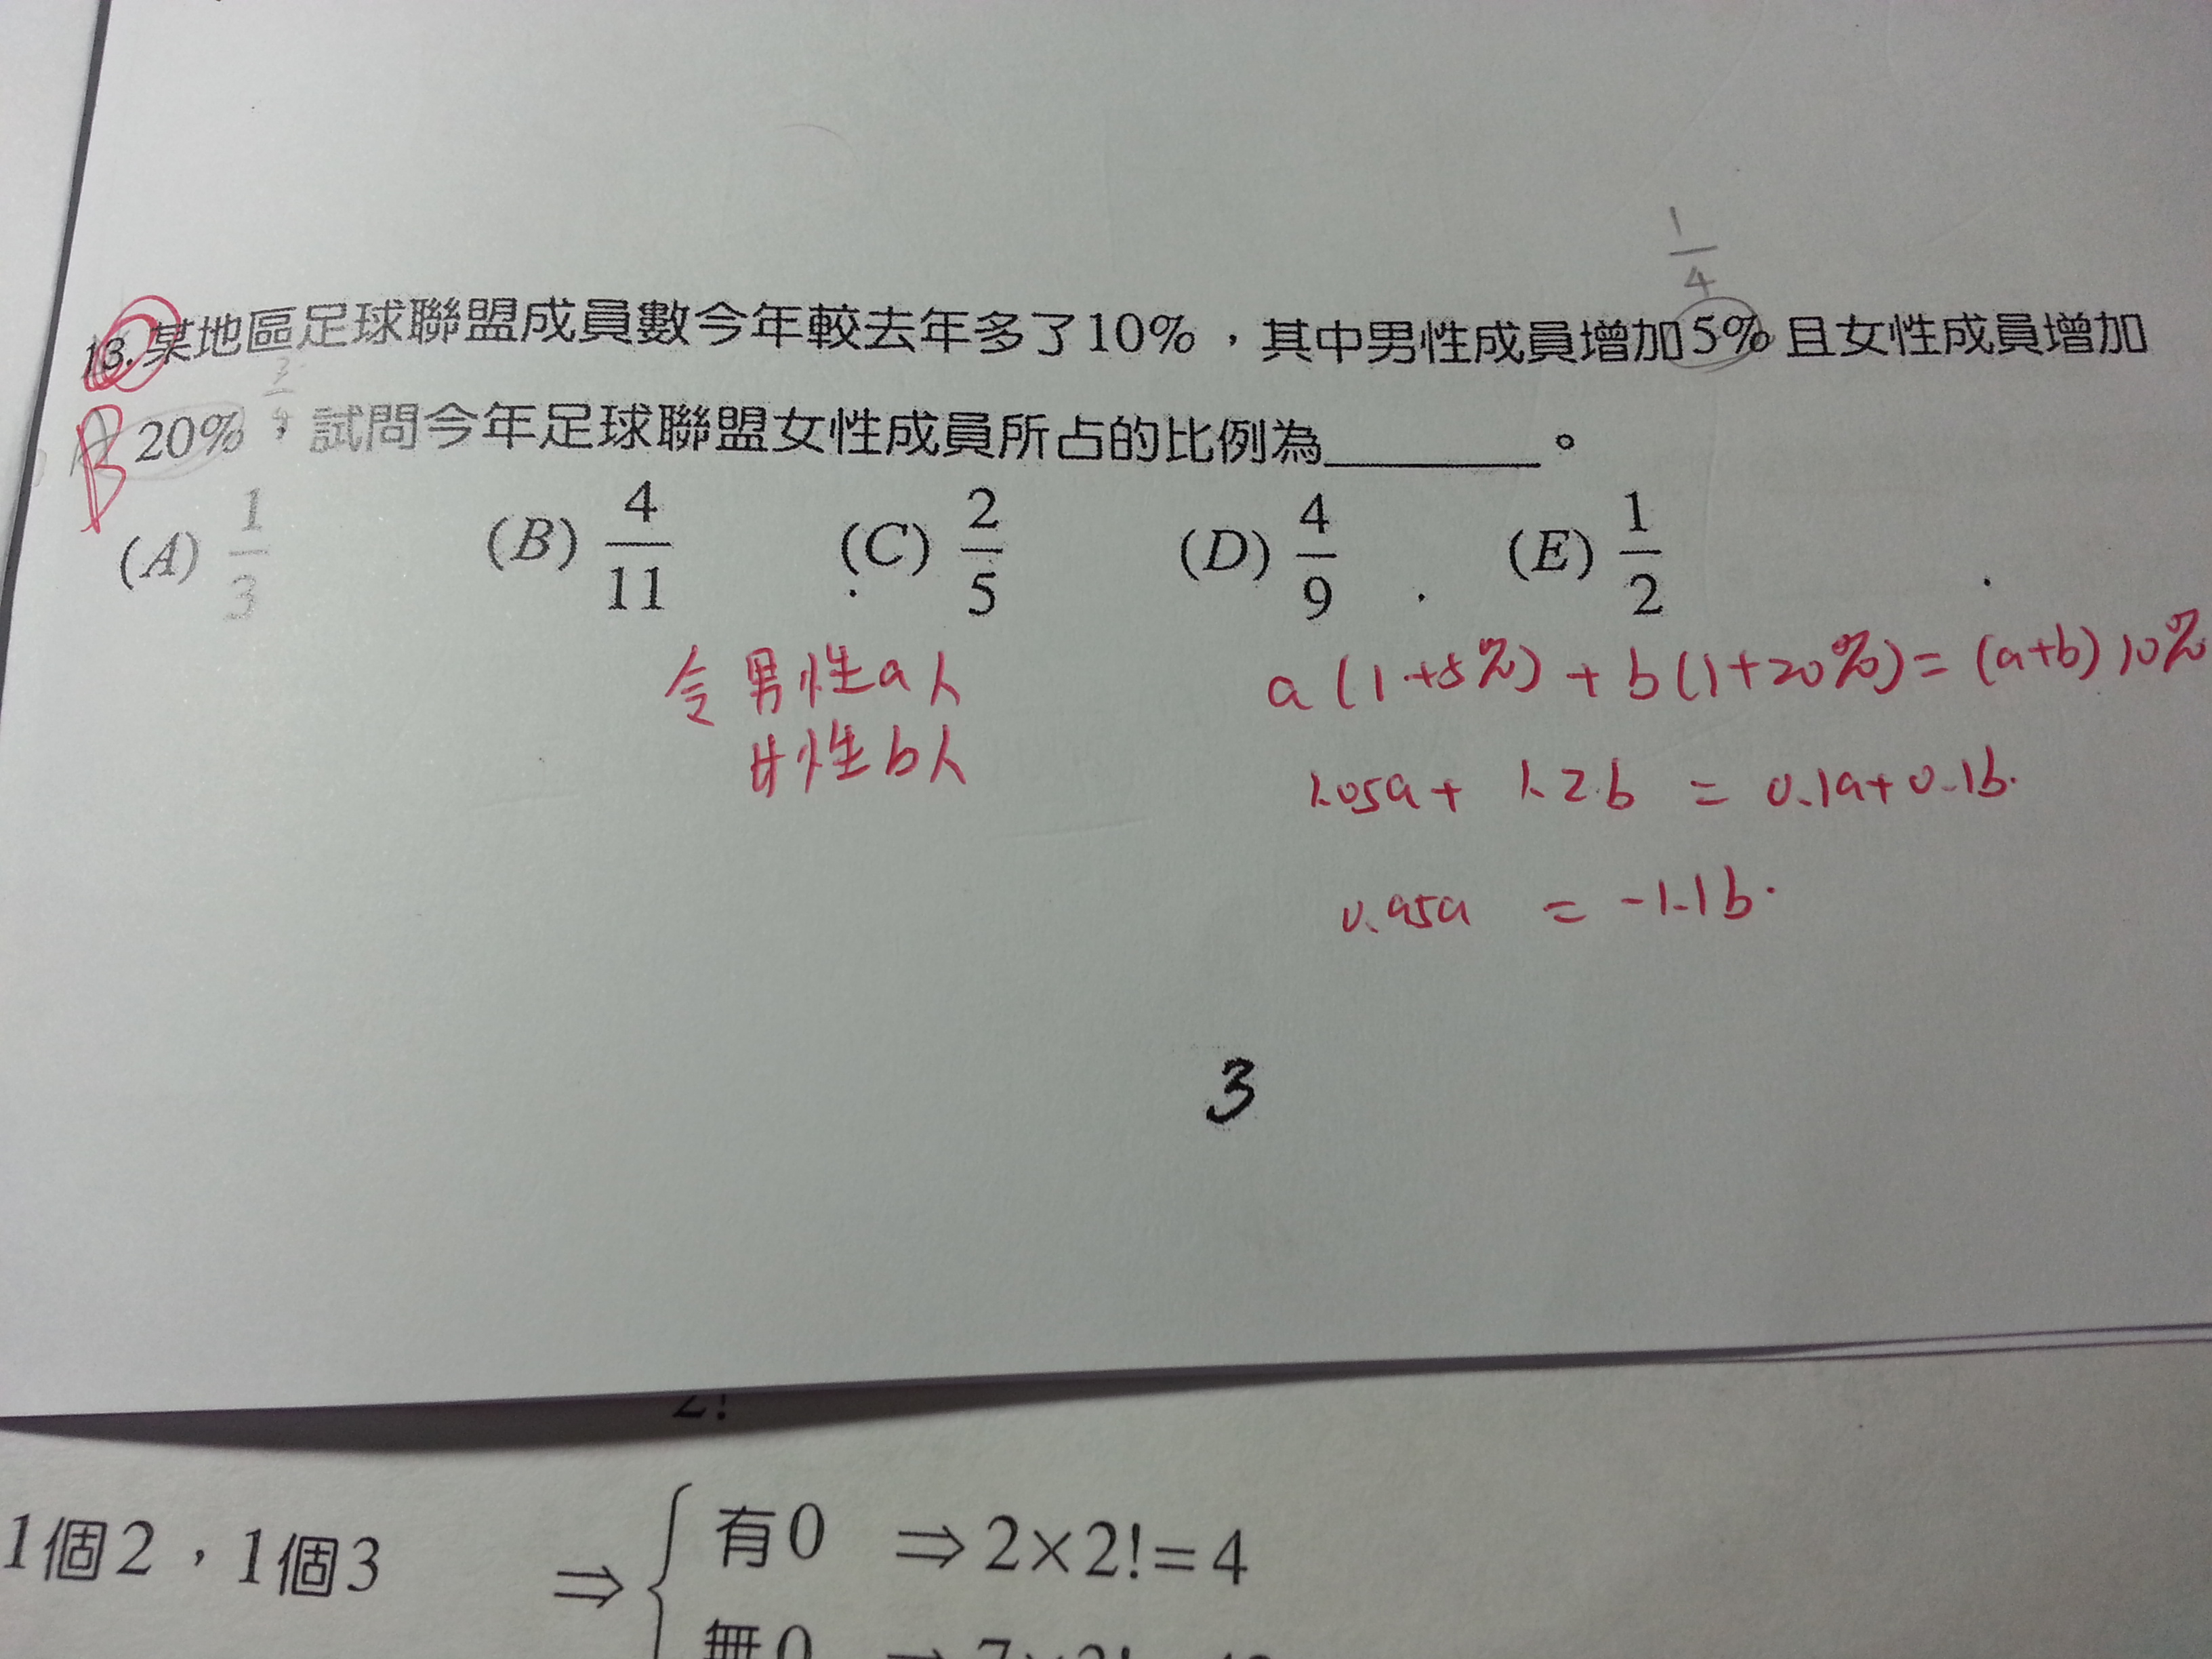 1
4
13.某地區足球聯盟成員數今年較去年多了10%,其中男性成員增加5%且女性成員增加
B 20%,試問今年足球聯盟女性成員所占的比例為________。
(A) 1/3 (B) 4/11 (C) 2/5 (D) 4/9 (E) 1/2
令男性a人 a(1+5%)+b(1+20%)=(a+b)10%
女性b人 1.05a+1.2b=0.1a+0.1b.
0.95a=-1.1b.
3
2!
1個2,1個3 ⇒ { 有0 ⇒2×2!=4
無0